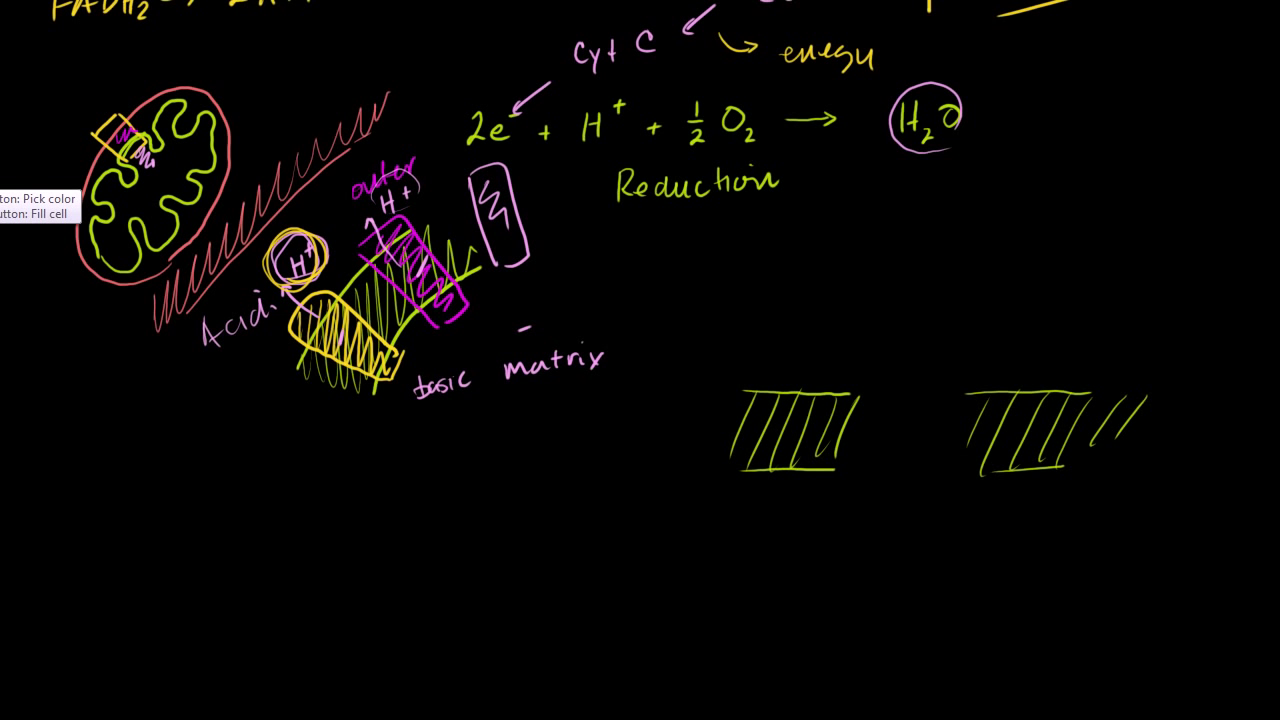 FADH₂
Cyt C
energy
2e⁻ + H⁺ + ½ O₂ → H₂O
Reduction
ton: Pick color
utton: Fill cell
outer
H⁺
H⁺
Acidi
basic matrix